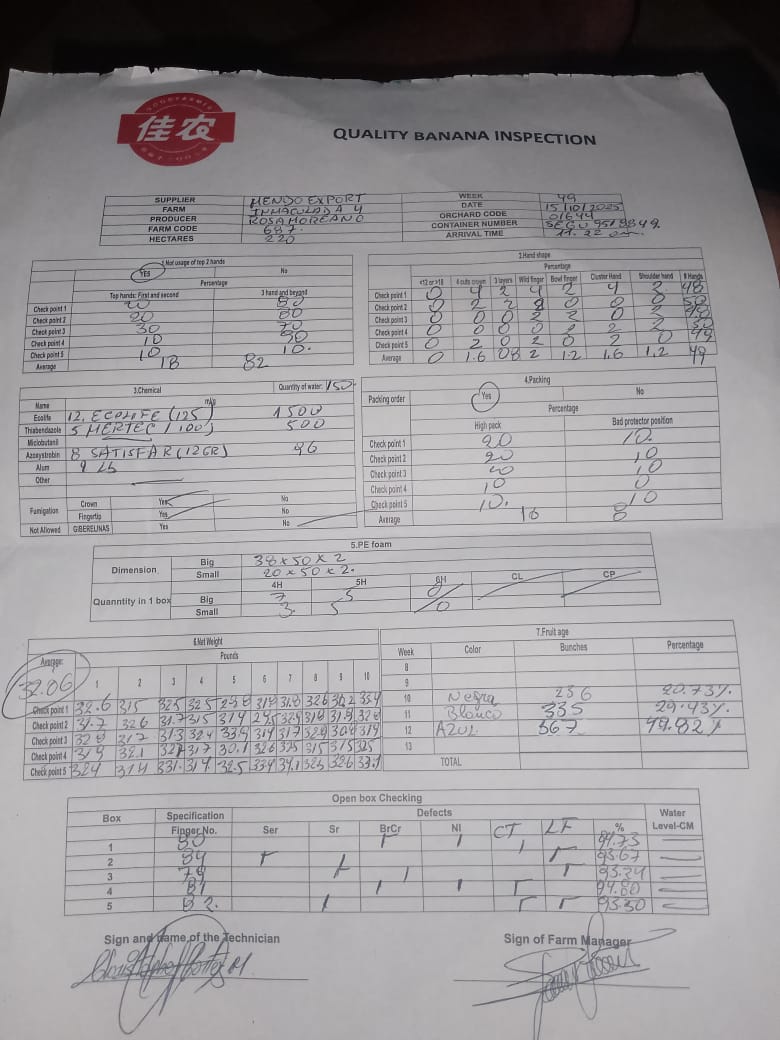 GOODFARMER
佳农
QUALITY BANANA INSPECTION
SUPPLIER MENDOEXPORT WEEK 49
FARM INMACULADA 4 DATE 15/10/2025
PRODUCER ROSA MOREANO ORCHARD CODE 01644
FARM CODE 687. CONTAINER NUMBER
HECTARES 220 ARRIVAL TIME
1.Not usage of top 2 hands
YES No
Percentage
Top hands: First and second 3 hand and beyond
Check point 1 20 80
Check point 2 20 80
Check point 3 30 70
Check point 4 10 90
Check point 5 10 10.
Average 18 82
2.Hand shape
Percentage
<12 or >18 4 cuts crown 3 layers Wild finger Bowl finger Cluster Hand Shoulder hand # Hands
Check point 1 0 4 2 4 2 4 2 48
Check point 2 0 2 2 0 0 0 50
Check point 3 0 0 0 2 2 0 2
Check point 4 0 0 0 0 2 2 50
Check point 5 0 2 0 2 0 2 0 49
Average 0 1.6 08 2 1.2 1.6 1.2 49
3.Chemical Quantity of water: 150.
Name mg
Ecolife 12. ECOLIFE (125) 1500
Thiabendazole 5 MERTEC (100) 500
Miclobutanil
Azoxystrobin 8 SATISFAR (12GR) 96
Alum 9 Lb
Other
Fumigation Crown Yes No
Fingertip Yes No
Not Allowed GIBERELINAS Yes No
4.Packing
Packing order Yes No
Percentage
High pack Bad protector position
Check point 1 20 10.
Check point 2 20 10
Check point 3 10
Check point 4 10 0
Check point 5 10. 10
Average 8
5.PE foam
Dimension Big 38 x 50 x 2
Small 20 x 50 x 2.
4H 5H 6H CL CP
Quanntity in 1 box Big 7 5 0
Small 3. 5 0
6.Net Weight
Average: Pounds
32.06 1 2 3 4 5 6 7 8 9 10
Check point 1 32.6 315 325 325 318 31.8 326 30.2 334
Check point 2 31.7 326 31.7 315 314 295 324 318 31.9 328
Check point 3 328 317 313 324 339 314 317 329 308 319
Check point 4 319 32.1 328 317 30.1 326 325 315 315 325
Check point 5 324 314 331. 314 32.5 334 34.1 325 326 33.1
7.Fruit age
Week Color Bunches Percentage
8
9
10 Negra 236 20.73%
11 Blanco 335 29.43%
12 AZUL 567 49.82%
13
TOTAL
Open box Checking
Box Specification Defects Water
Finger No. Ser Sr BrCr NI CT LF % Level-CM
1 80 94.73
2 84 93.67
3 79 93.24
4 81 94.80
5 82. 93.50
Sign and name of the Technician Sign of Farm Manager